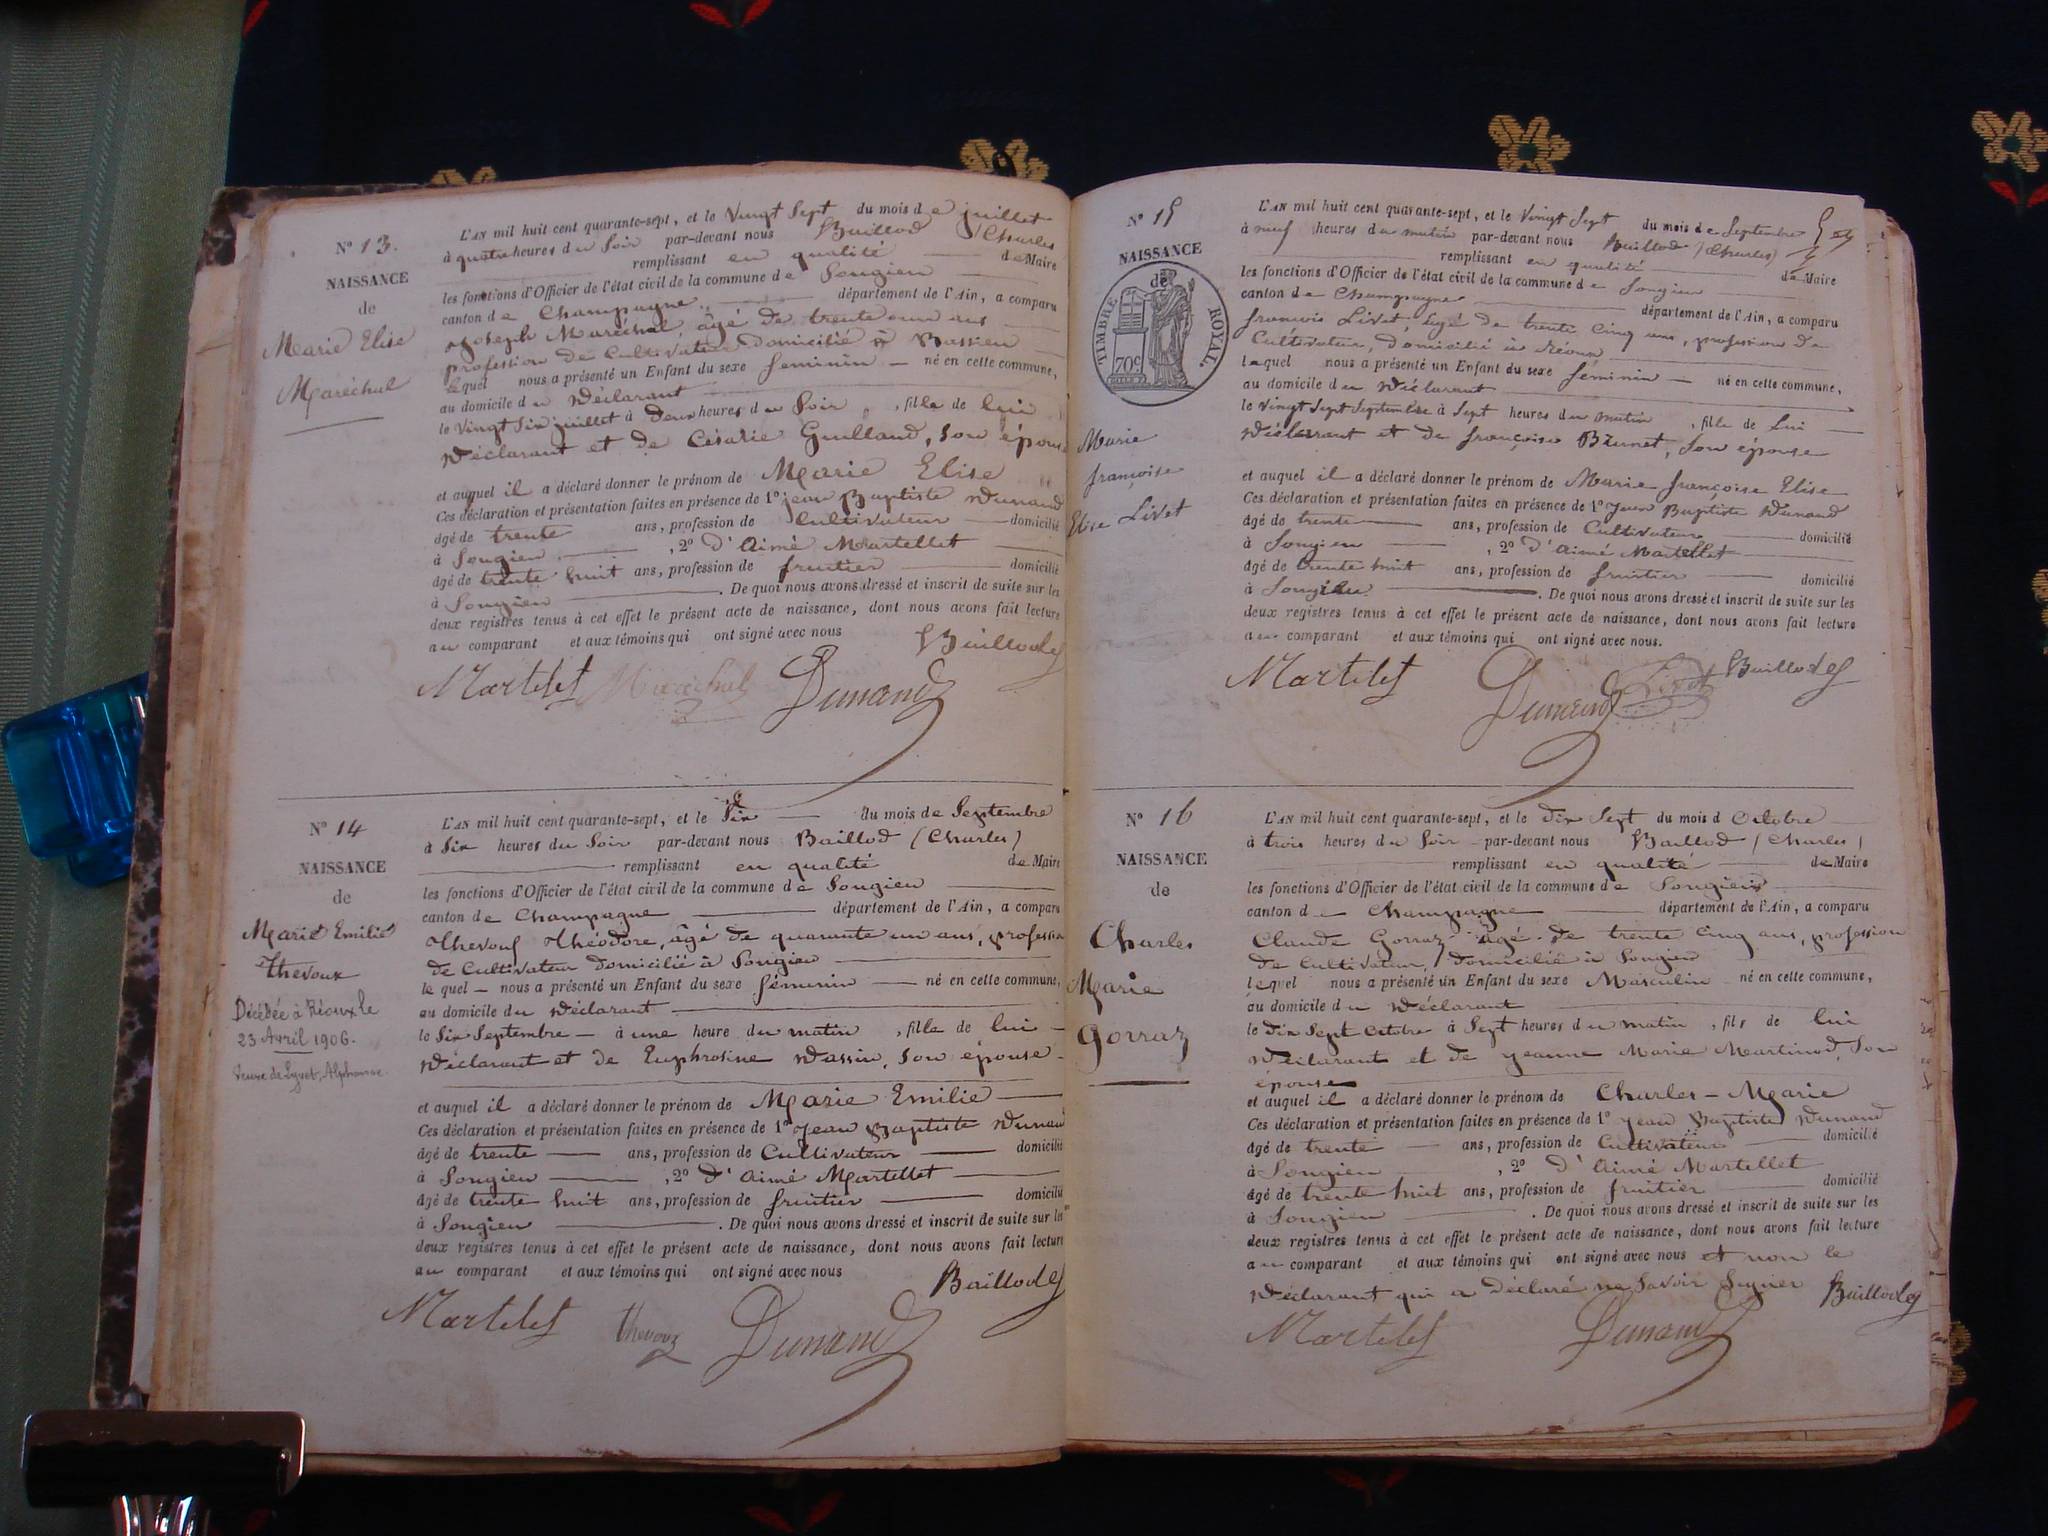 N° 13.
NAISSANCE
de
Marie Elise
Maréchal
L'AN mil huit cent quarante-sept, et le Vingt Sept du mois de juillet
à quatre heures du Soir par-devant nous Baillod (Charles
remplissant en qualité de Maire
les fonctions d'Officier de l'état civil de la commune de Songieu
canton de Champagne département de l'Ain, a comparu
Joseph Maréchal, âgé de trente un ans
profession de Cultivateur domicilié à Bassieu
lequel nous a présenté un Enfant du sexe feminin né en cette commune,
au domicile du Déclarant
le Vingt Six juillet à Deux heures du Soir, fille de lui
Déclarant et de Césarie Guilland, Son épouse
et auquel il a déclaré donner le prénom de Marie Elise
Ces déclaration et présentation faites en présence de 1° jean Baptiste Dunand
âgé de trente ans, profession de Cultivateur domicilié
à Songieu, 2° d'Aimé Martellet
âgé de trente huit ans, profession de fruitier domicilié
à Songieu. De quoi nous avons dressé et inscrit de suite sur les
deux registres tenus à cet effet le présent acte de naissance, dont nous avons fait lecture
au comparant et aux témoins qui ont signé avec nous
Baillod
Martelet Maréchal Dunand
N° 14
NAISSANCE
de
Marie Emilie
Thevoux
Décédée à Réoux le
23 Avril 1906.
Veuve de Lyvet, Alphonse
L'AN mil huit cent quarante-sept, et le Six du mois de Septembre
à Six heures du Soir par-devant nous Baillod (Charles)
remplissant en qualité de Maire
les fonctions d'Officier de l'état civil de la commune de Songieu
canton de Champagne département de l'Ain, a comparu
Théodore, âgé de quarante un ans, profession
de Cultivateur domicilié à Songieu
le quel nous a présenté un Enfant du sexe féminin né en cette commune,
au domicile du Déclarant
le Six Septembre à une heure du matin, fille de lui
Déclarant et de Euphrosine Dassin, Son épouse
et auquel il a déclaré donner le prénom de Marie Emilie
Ces déclaration et présentation faites en présence de 1° Jean Baptiste Dunand
âgé de trente ans, profession de Cultivateur domicilié
à Songieu, 2° d'Aimé Martellet
âgé de trente huit ans, profession de fruitier domicilié
à Songieu. De quoi nous avons dressé et inscrit de suite sur les
deux registres tenus à cet effet le présent acte de naissance, dont nous avons fait lecture
au comparant et aux témoins qui ont signé avec nous
Baillod
Martelet Thevoux Dunand
N° 15
NAISSANCE
de
TIMBRE ROYAL.
70c
Marie
françoise
Elise Livet
L'AN mil huit cent quarante-sept, et le Vingt Sept du mois de Septembre
à neuf heures du matin par-devant nous Baillod (Charles)
remplissant en qualité de Maire
les fonctions d'Officier de l'état civil de la commune de Songieu
canton de Champagne département de l'Ain, a comparu
françois Livet, âgé de trente Cinq ans, profession de
Cultivateur, domicilié à Réoux
lequel nous a présenté un Enfant du sexe féminin né en cette commune,
au domicile du Déclarant
le Vingt Sept Septembre à Sept heures du matin, fille de Lui
Déclarant et de françoise Brunet, Son épouse
et auquel il a déclaré donner le prénom de Marie françoise Elise
Ces déclaration et présentation faites en présence de 1° Jean Baptiste Dunand
âgé de trente ans, profession de Cultivateur domicilié
à Songieu, 2° d'Aimé Martellet
âgé de trente huit ans, profession de fruitier domicilié
à Songieu. De quoi nous avons dressé et inscrit de suite sur les
deux registres tenus à cet effet le présent acte de naissance, dont nous avons fait lecture
au comparant et aux témoins qui ont signé avec nous.
Martelet Dunand Livet Baillod
N° 16
NAISSANCE
de
Charles
Marie
Gorraz
L'AN mil huit cent quarante-sept, et le dix Sept du mois d Octobre
à trois heures du Soir par-devant nous Baillod (Charles)
remplissant en qualité de Maire
les fonctions d'Officier de l'état civil de la commune de Songieu
canton de Champagne département de l'Ain, a comparu
Claude Gorraz âgé de trente Cinq ans, profession
de Cultivateur, domicilié à Songieu
lequel nous a présenté un Enfant du sexe Masculin né en cette commune,
au domicile du Déclarant
le dix Sept Octobre à Sept heures du matin, fils de lui
Déclarant et de jeanne Marie Martinod, Son
épouse
et auquel il a déclaré donner le prénom de Charles-Marie
Ces déclaration et présentation faites en présence de 1° jean Baptiste Dunand
âgé de trente ans, profession de Cultivateur domicilié
à Songieu, 2° d'Aimé Martellet
âgé de trente huit ans, profession de fruitier domicilié
à Songieu. De quoi nous avons dressé et inscrit de suite sur les
deux registres tenus à cet effet le présent acte de naissance, dont nous avons fait lecture
au comparant et aux témoins qui ont signé avec nous et non le
Déclarant qui a Déclaré ne Savoir Signer Baillod
Martelet Dunand